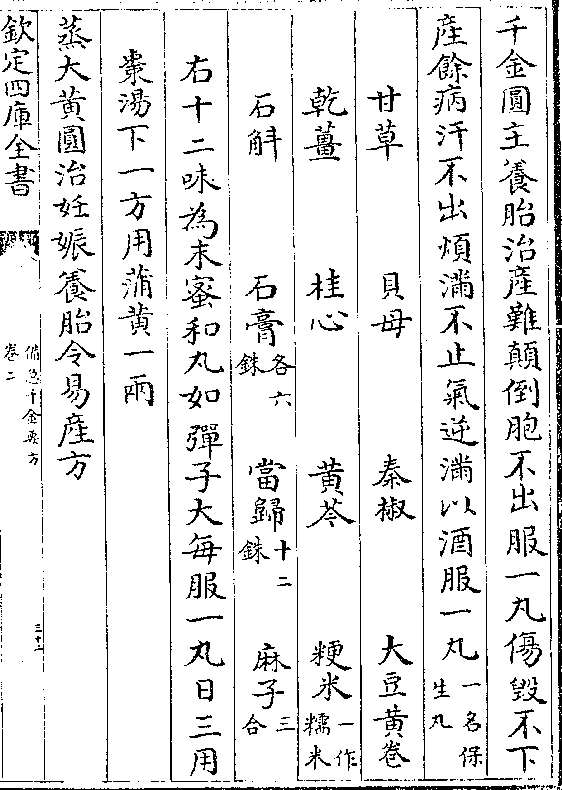 千金圓主養胎治產難顛倒胞不出服一丸傷毀不下
產餘病汗不出煩滿不止氣逆滿以酒服一丸一名保生丸
甘草 貝母 秦椒 大豆黃卷
乾薑 桂心 黃芩 粳米一作糯米
石斛 石膏各六銖 當歸十二銖 麻子三合
右十二味為末蜜和丸如彈子大每服一丸日三用
棗湯下一方用蒲黃一兩
蒸大黃圓治妊娠養胎令易產方
欽定四庫全書
備急千金要方
卷二